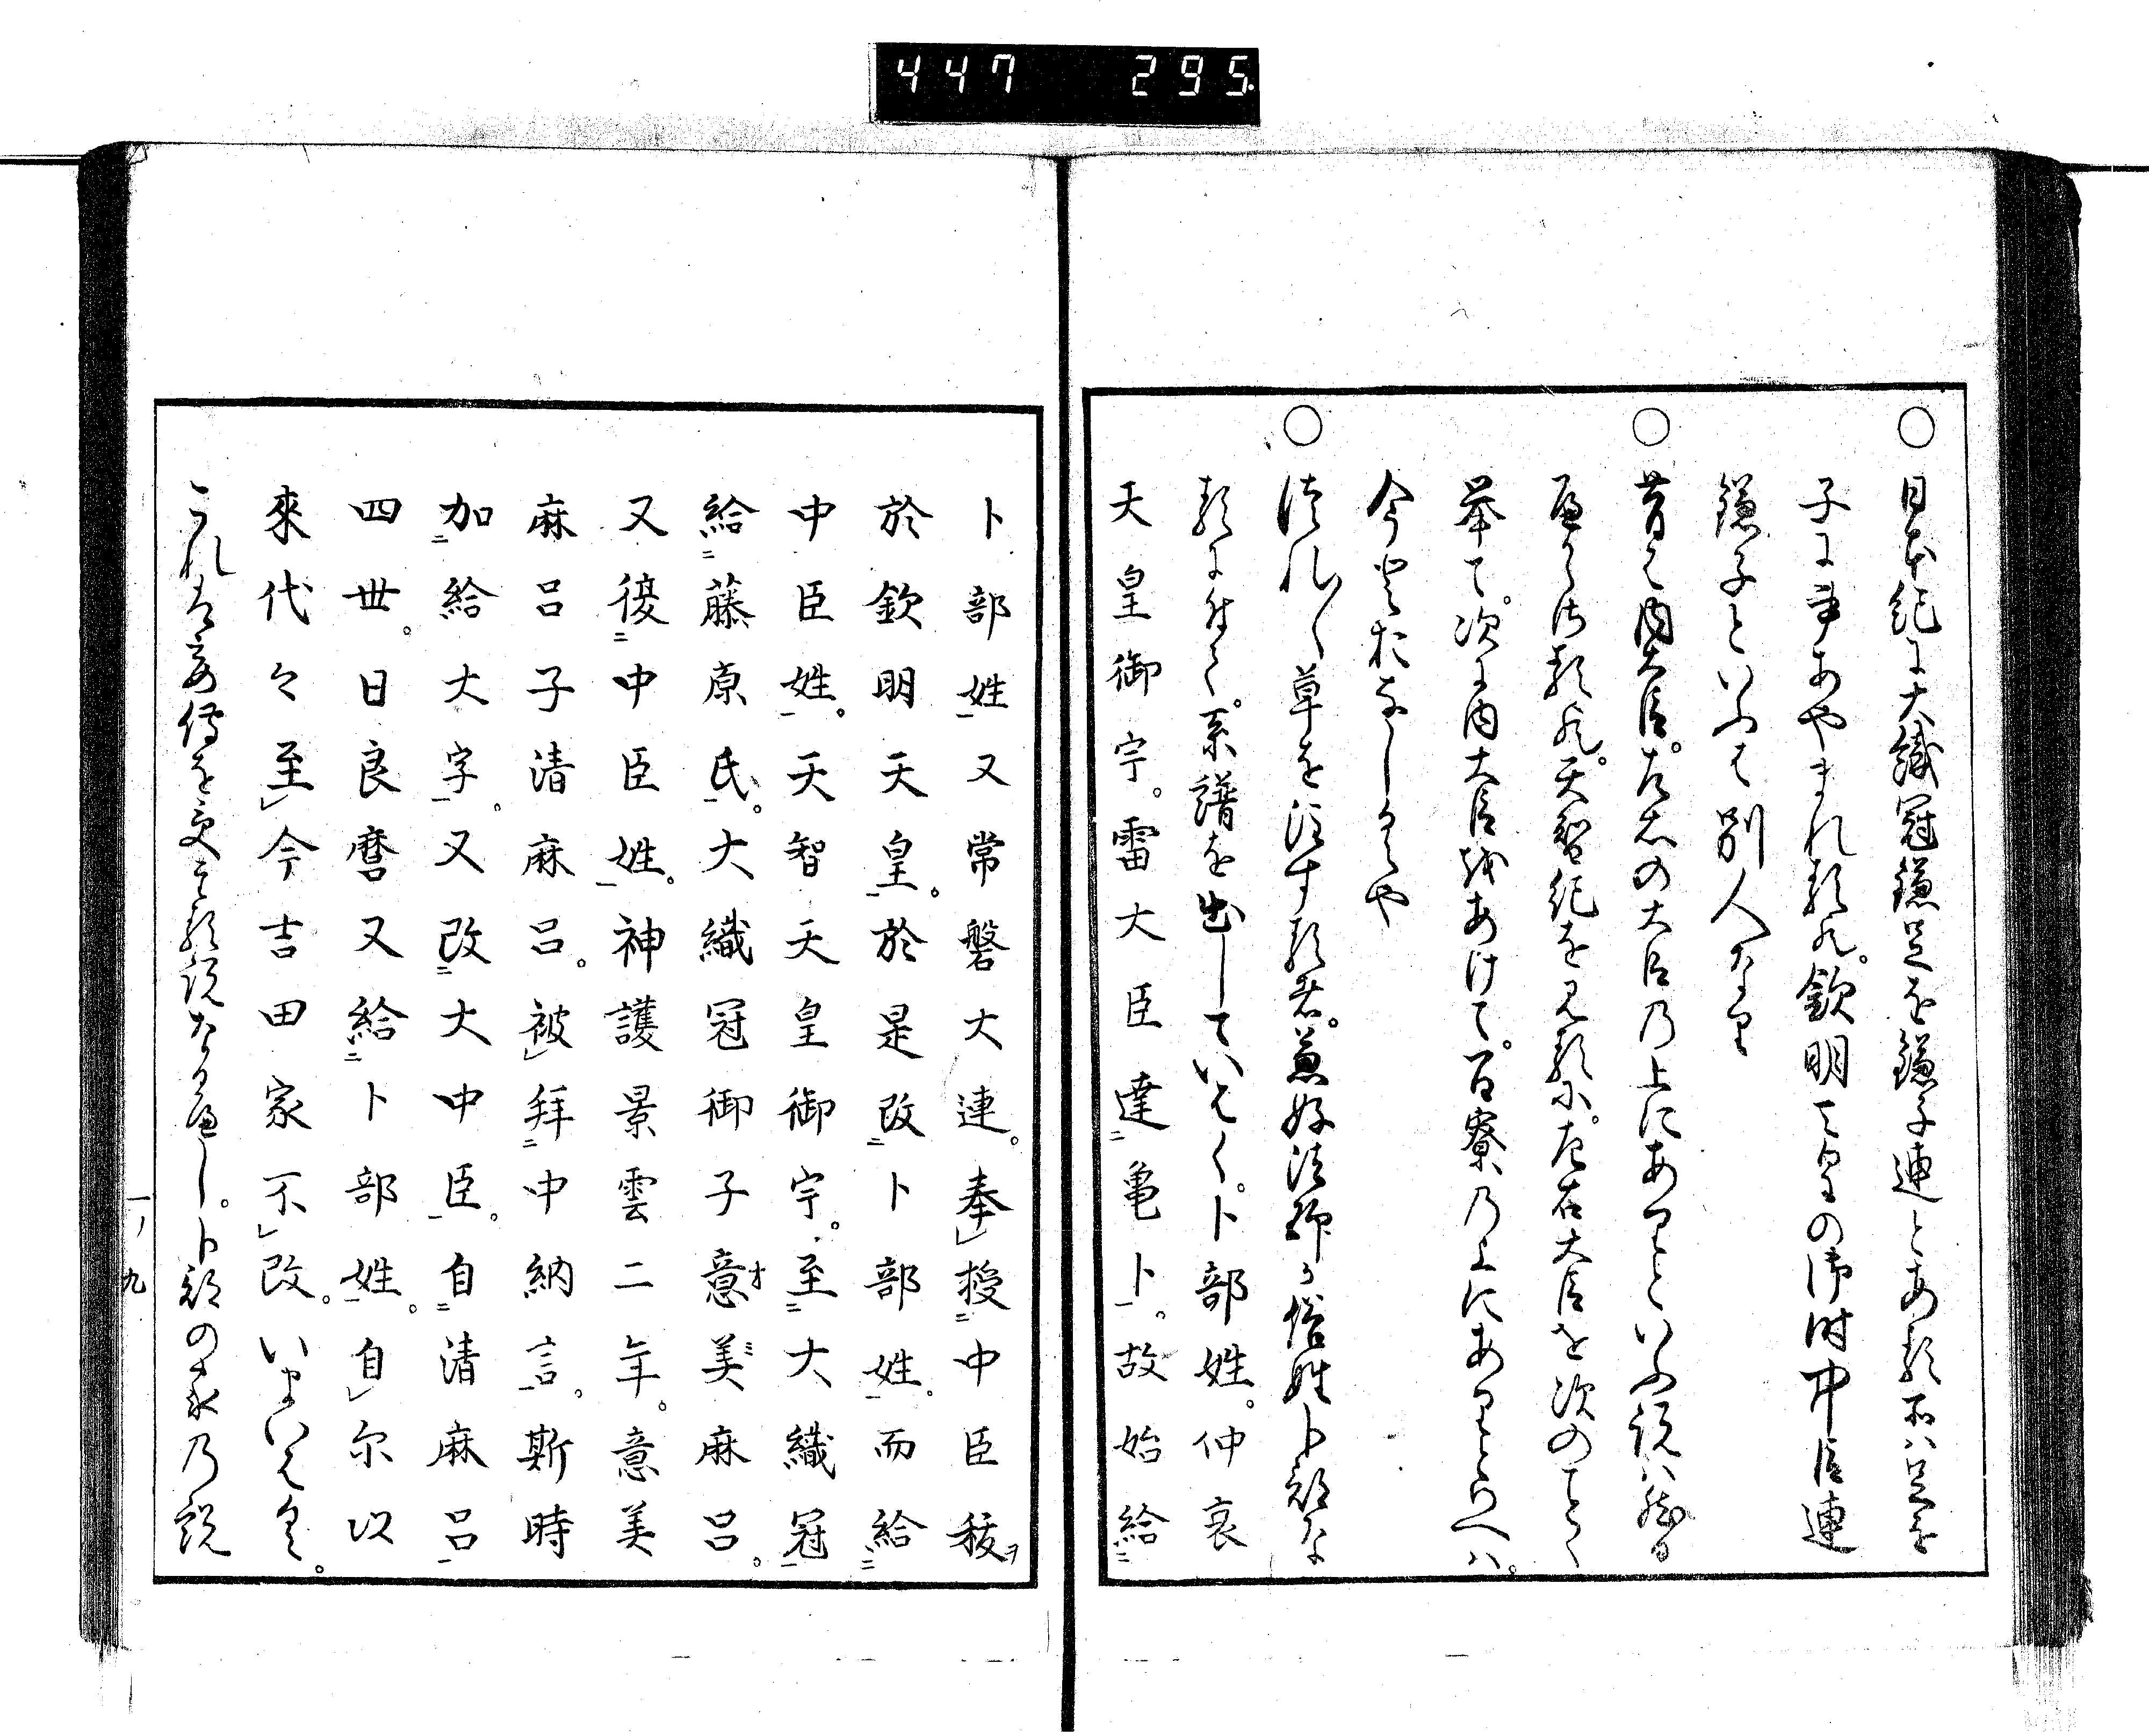 447 295.
○日本紀に大織冠鎌足を鎌子連とある所ハ足を
子にまあやまれる也。欽明天皇の御時中臣連
鎌子といふハ別人なり
○昔ハ内大臣。左右の大臣乃上にありといふ説ハ
天智紀を見るに。左右大臣を次のことく
挙て。次に内大臣をあけて。百寮乃上にありといへハ。
今とおなしからや
○つれ〱草を注する者。兼好法師か俗姓卜部な
るによりて。系譜を出していはく。卜部姓。仲哀
天皇御宇。雷大臣達亀卜。故始給
卜部姓又常磐大連。奉授中臣祓ヲ
於欽明天皇。於是改卜部姓。而給
中臣姓。天智天皇御宇。至大織冠
給藤原氏。大織冠御子意美麻呂。
又復中臣姓。神護景雲二年。意美
麻呂子清麻呂。被拝中納言。斯時
加給大字。又改大中臣。自清麻呂
四世。日良麿又給卜部姓。自尓以
來代々至今吉田家不改。いまいはく。
これは妄傳を受たる説なるへし。卜部の家乃説
一ノ九